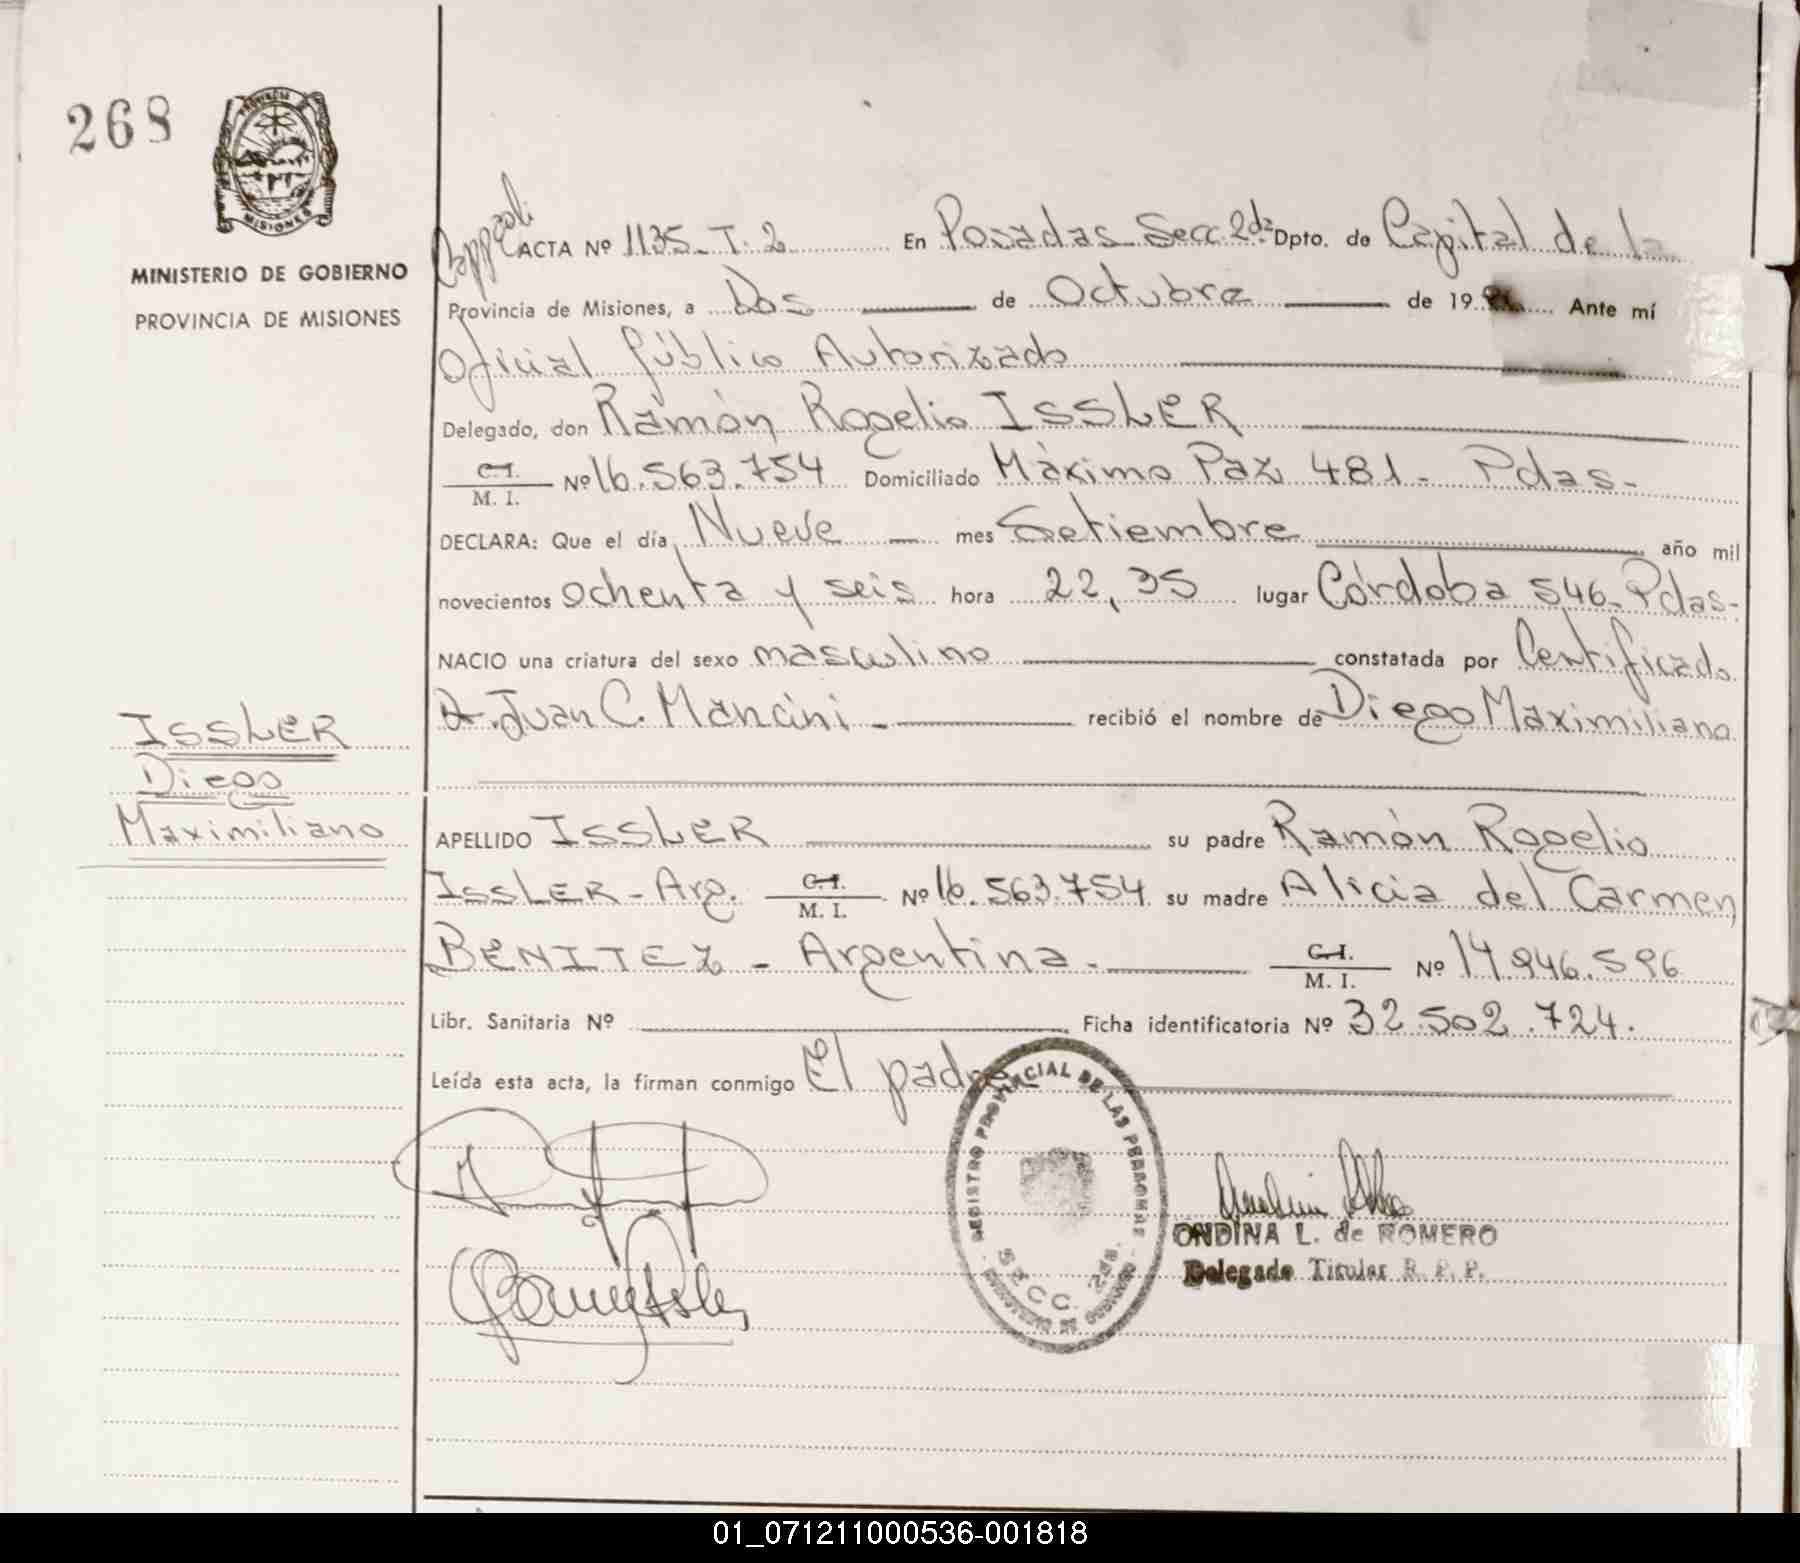 268
PROVINCIA
MISIONES
MINISTERIO DE GOBIERNO
PROVINCIA DE MISIONES
ACTA Nº 1135 - T. 2 En Posadas Secc. 2da Dpto. de Capital de la
Provincia de Misiones, a Dos de Octubre de 19 Ante mí
Oficial Público Autorizado
Delegado, don Ramón Rogelio ISSLER
C.I. / M. I. Nº 16.563.754 Domiciliado Máximo Paz 481 - Pdas -
DECLARA: Que el día Nueve mes Setiembre año mil
novecientos ochenta y seis hora 22,35 lugar Córdoba 546 - Pdas -
NACIO una criatura del sexo masculino constatada por Certificado
Dr. Juan C. Mancini - recibió el nombre de Diego Maximiliano
ISSLER
Diego
Maximiliano
APELLIDO ISSLER su padre Ramón Rogelio
ISSLER - Arg. C.I. / M. I. Nº 16.563.754 su madre Alicia del Carmen
BENITEZ - Argentina - C.I. / M. I. Nº 14.946.596
Libr. Sanitaria Nº Ficha identificatoria Nº 32.502.724.
Leída esta acta, la firman conmigo El padre
REGISTRO PROVINCIAL DE LAS PERSONAS
SECC. 2da.
MINISTERIO DE GOBIERNO
ONDINA L. de ROMERO
Delegado Titular R. P. P.
01_071211000536-001818